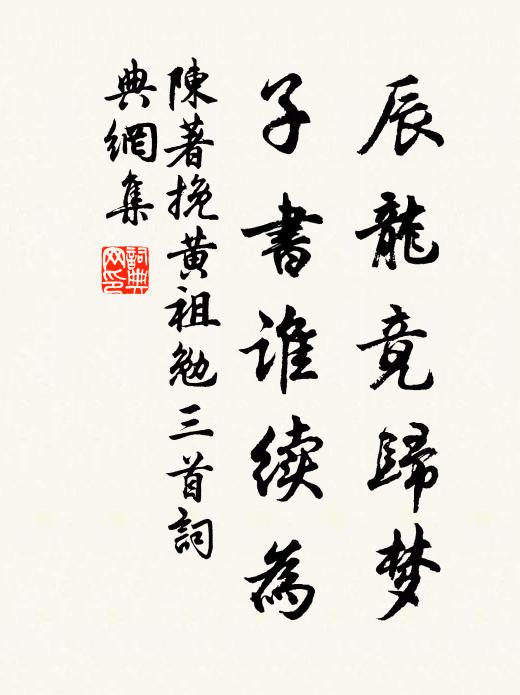 辰龍竟歸梦
子書谁续為
陳著挽黄祖勉三首詞
典網集
詞典网印